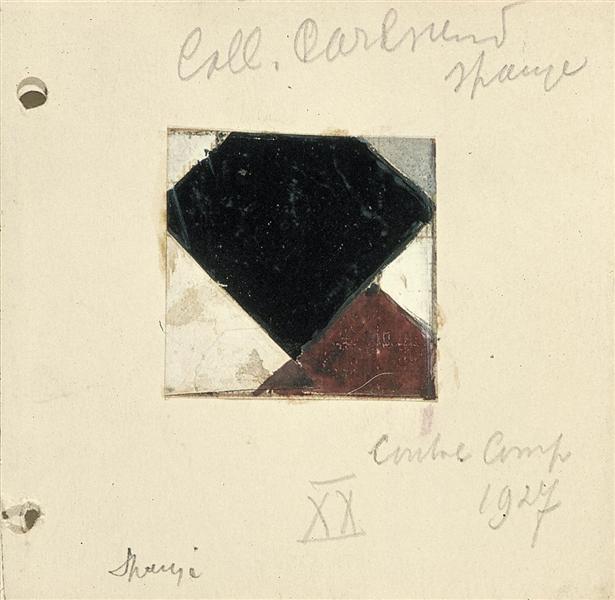 Coll. Carlsund
Spanje
Contre Comp
1927
XX
Spanje